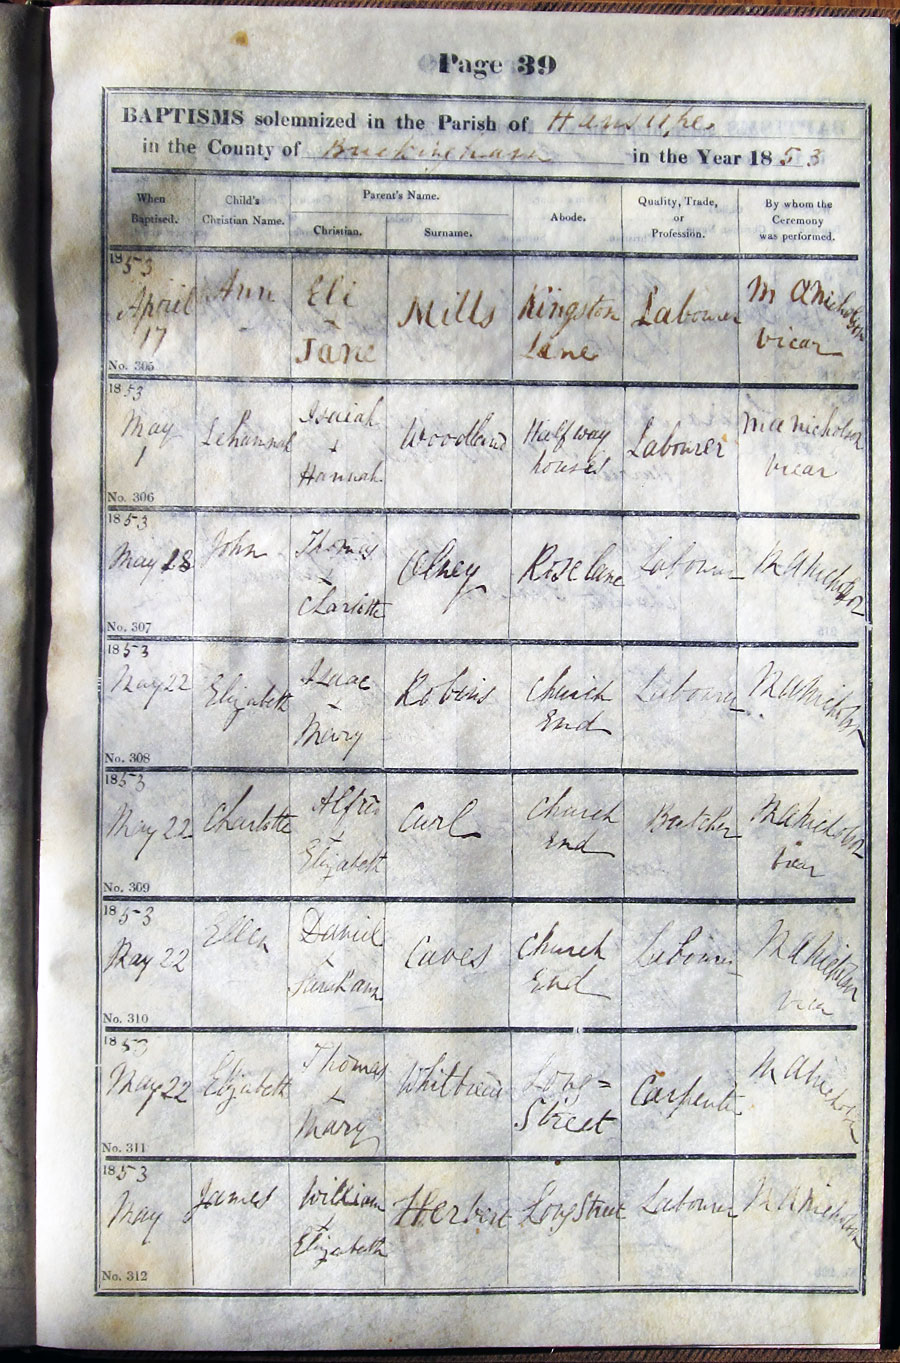 Page 39
BAPTISMS solemnized in the Parish of Hanslope
in the County of Buckingham in the Year 1853
When Baptised. Child's Christian Name. Parent's Name. Christian. Surname. Abode. Quality, Trade, or Profession. By whom the Ceremony was performed.
1853 April 17 Ann Eli + Jane Mills Kingston Lane Labourer M A Nicholson Vicar
No. 305
1853 May 1 Isaiah + Hannah Woodland Half way houses Labourer M A Nicholson Vicar
No. 306
1853 May John Thomas + Charlotte Olney Rose lane Labourer M A Nicholson
No. 307
1853 May 22 Elizabeth Isaac + Mary Robins Church End Labourer M A Nicholson
No. 308
1853 May 22 Charlotte Alfred + Elizabeth Curl Church End Butcher M A Nicholson Vicar
No. 309
1853 May 22 Ellen Daniel + Caves Church End Labourer M A Nicholson Vicar
No. 310
1853 May 22 Elizabeth Thomas + Mary Whitbread Long= Street Carpenter M A Nicholson
No. 311
1853 May James William + Elizabeth Herbert Long Street Labourer M A Nicholson
No. 312